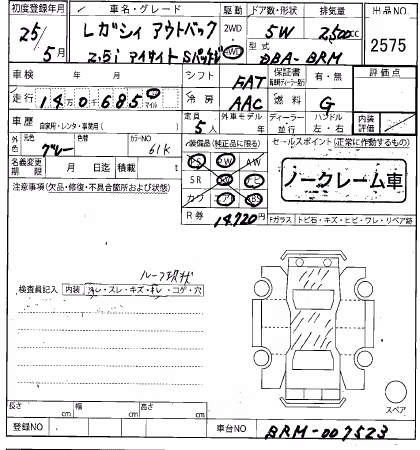 初度登録年月 車名・グレード 駆動 ドア数・形状 排気量 出品NO
25/5月 レガシィ アウトバック 2WD 5W 2,500cc 2575
2.5i アイサイト Sパッケージ 4WD 型式 DBA-BRM
車検 年 月 シフト FAT 保証書 有・無 評価点
走行 140685 マイル 冷房 AAC 燃料 G
車歴 自家用・レンタ・事業用( ) 定員 5人 外車モデル 年 ディーラー 並行 ハンドル 左・右 内装評価
外色 元色 グレー 色替 カラーNO 61K 装備品(純正品に限る) セールスポイント(正常に作動するもの)
名義変更期限 月 日迄 積載 t PS PW AW
注意事項(欠品・修復・不具合箇所および状態) SR SW ナビ ノークレーム車
カワ エアB ABS
R券 14,720円 Fガラス トビ石・キズ・ヒビ・ワレ・リペア跡
検査員記入 内装 ヨゴレ・スレ・キズ・キレ・コゲ・穴
スペア
長さ cm 幅 cm 高さ cm
登録NO 車台NO BRM-007523